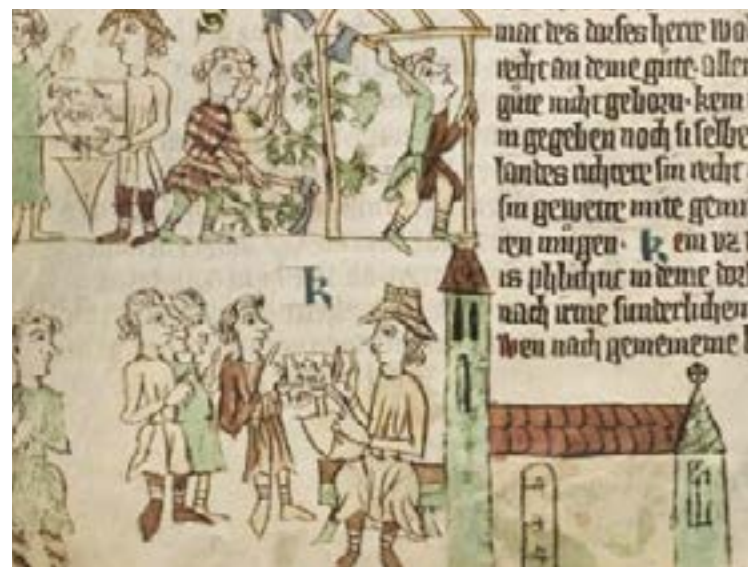 S
K
mac des dorfes herre wa
recht an deme gute. allen
gute nicht geborn. kein
in gegeben noch si selbe
landes richtere sin recht
sin gewette mite gemi
ren mugen. Kein vz
is phlichtic in deme dor
nach irme sunderlichen
Wen nach gemeineme l